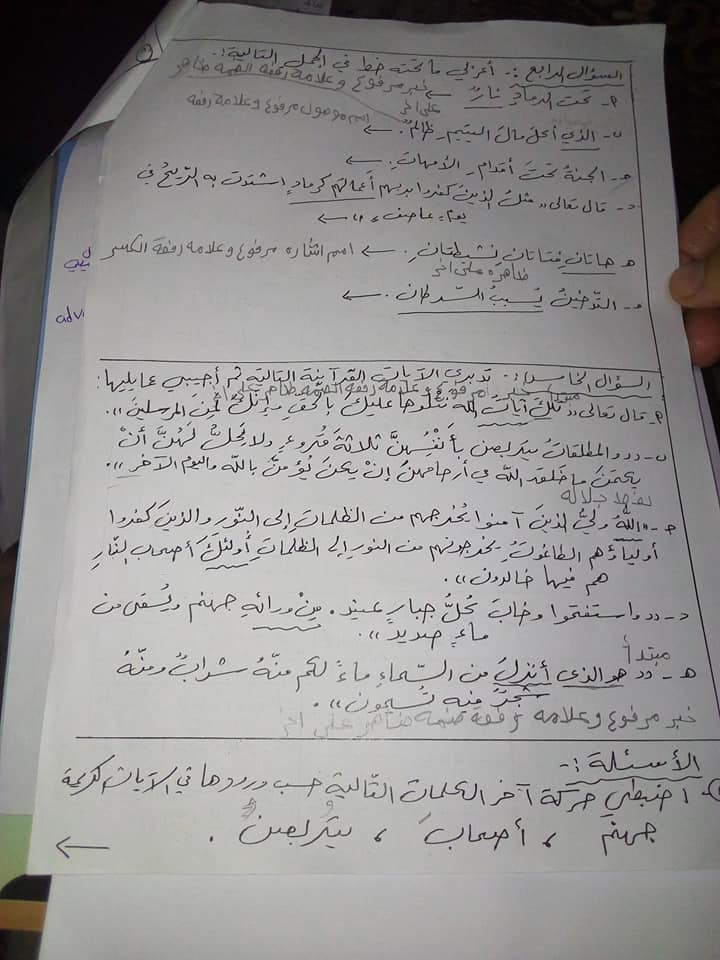 السؤال الرابع :- أعربي ما تحته خط في الجمل التالية :-
خبر مرفوع وعلامة رفعه الضمة ظاهر
على اخر
أ- تحت الرماد نارٌ ←
اسم موصول مرفوع وعلامة رفعه
ب- الذي أكل مالَ اليتيم ظالمٌ. ←
ج- الجنةُ تحتَ أقدام الأمهاتِ. ←
د- قال تعالى "مثلُ الذينَ كفروا بربهم أعمالهم كرمادٍ اشتدت به الرّيحُ في
يومٍ عاصف" ←
هـ- هاتانِ فتاتانِ نشيطتانِ. ← اسم اشاره مرفوع وعلامه رفعة الكسر
ظاهره على اخر
و- التدخينُ يُسببُ السّرطان. ←
السؤال الخامس :- تدبري الآيات القرآنية التالية ثم أجيبي عما يليها:
أ- قال تعالى "تلكَ آياتُ الله نتلوها عليكَ بالحقِ وإنكَ لمنَ المرسلينَ".
ب- "والمطلقاتُ يتربصن بأنفُسِهنَّ ثلاثةَ قُروءٍ ولا يَحِلُّ لَهُنَّ أنْ
يكتمنَ ما خلقَ اللهُ في أرحامهنَّ إنْ يكنَّ يُؤمنَّ بالله واليوم الآخرِ".
لفظ جلاله
ج- "اللهُ وليُّ الذينَ آمنوا يُخرجهم من الظلمات إلى النّور والذينَ كفروا
أولياؤهم الطاغوتُ يخرجونهم من النورِ إلى الظلماتِ أولئكَ أصحاب النّارِ
هم فيها خالدون".
د- "واستفتحوا وخابَ كُلُّ جبارٍ عنيد. مِنْ ورائهِ جهنم ويُسقى من
ماءٍ صديد".
مبتدأ
هـ- "هو الذي أنزلَ من السّماءِ ماءً لكم منهُ شرابٌ ومنهُ
شجرٌ فيه تُسيمون".
خبر مرفوع وعلامه رفعة ضمه ظاهر على اخر
الأسئلة :-
اضبطي حركة آخر الكلمات التالية حسب ورودها في الآيات الكريمة
جهنم ، أصحاب ، يتربصن .
←